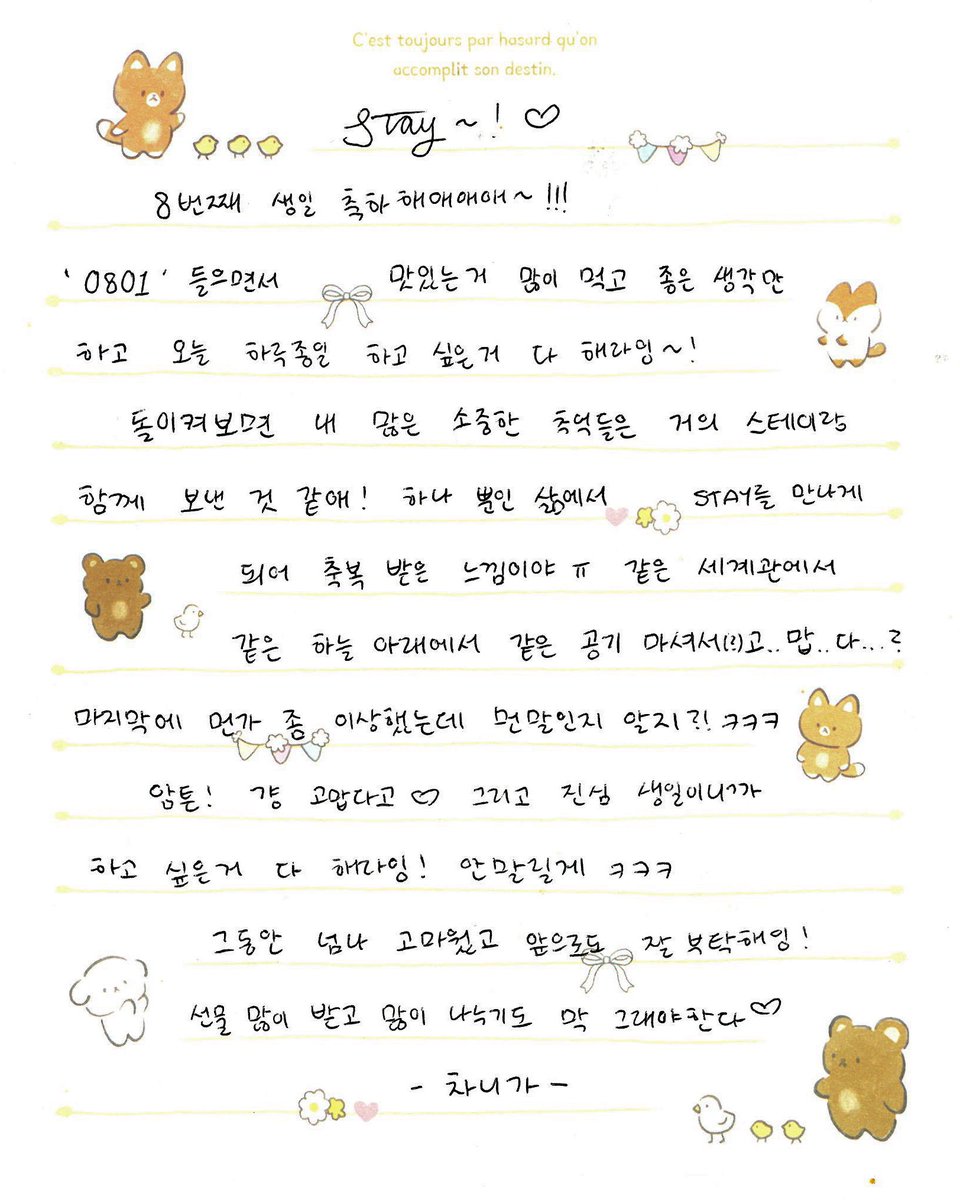 C'est toujours par hasard qu'on
accomplit son destin.
STay ~ ! ♡
8번째 생일 축하해애애애 ~ !!!
'0801' 들으면서 맛있는거 많이 먹고 좋은 생각만
하고 오늘 하루종일 하고 싶은거 다 해라잉~!
돌이켜보면 내 많은 소중한 추억들은 거의 스테이랑
함께 보낸 것 같애! 하나 뿐인 삶에서 STAY를 만나게
되어 축복 받은 느낌이야 ㅠ 같은 세계관에서
같은 하늘 아래에서 같은 공기 마셔서(?)고..맙..다...?
마지막에 먼가 좀 이상했는데 먼말인지 알지?! ㅋㅋㅋ
암튼! 걍 고맙다고 ♡ 그리고 진심 생일이니까
하고 싶은거 다 해라잉! 안말릴게 ㅋㅋㅋ
그동안 넘나 고마웠고 앞으로도 잘 부탁해잉!
선물 많이 받고 많이 나눅기도 막 그래야한다♡
- 차니가 -